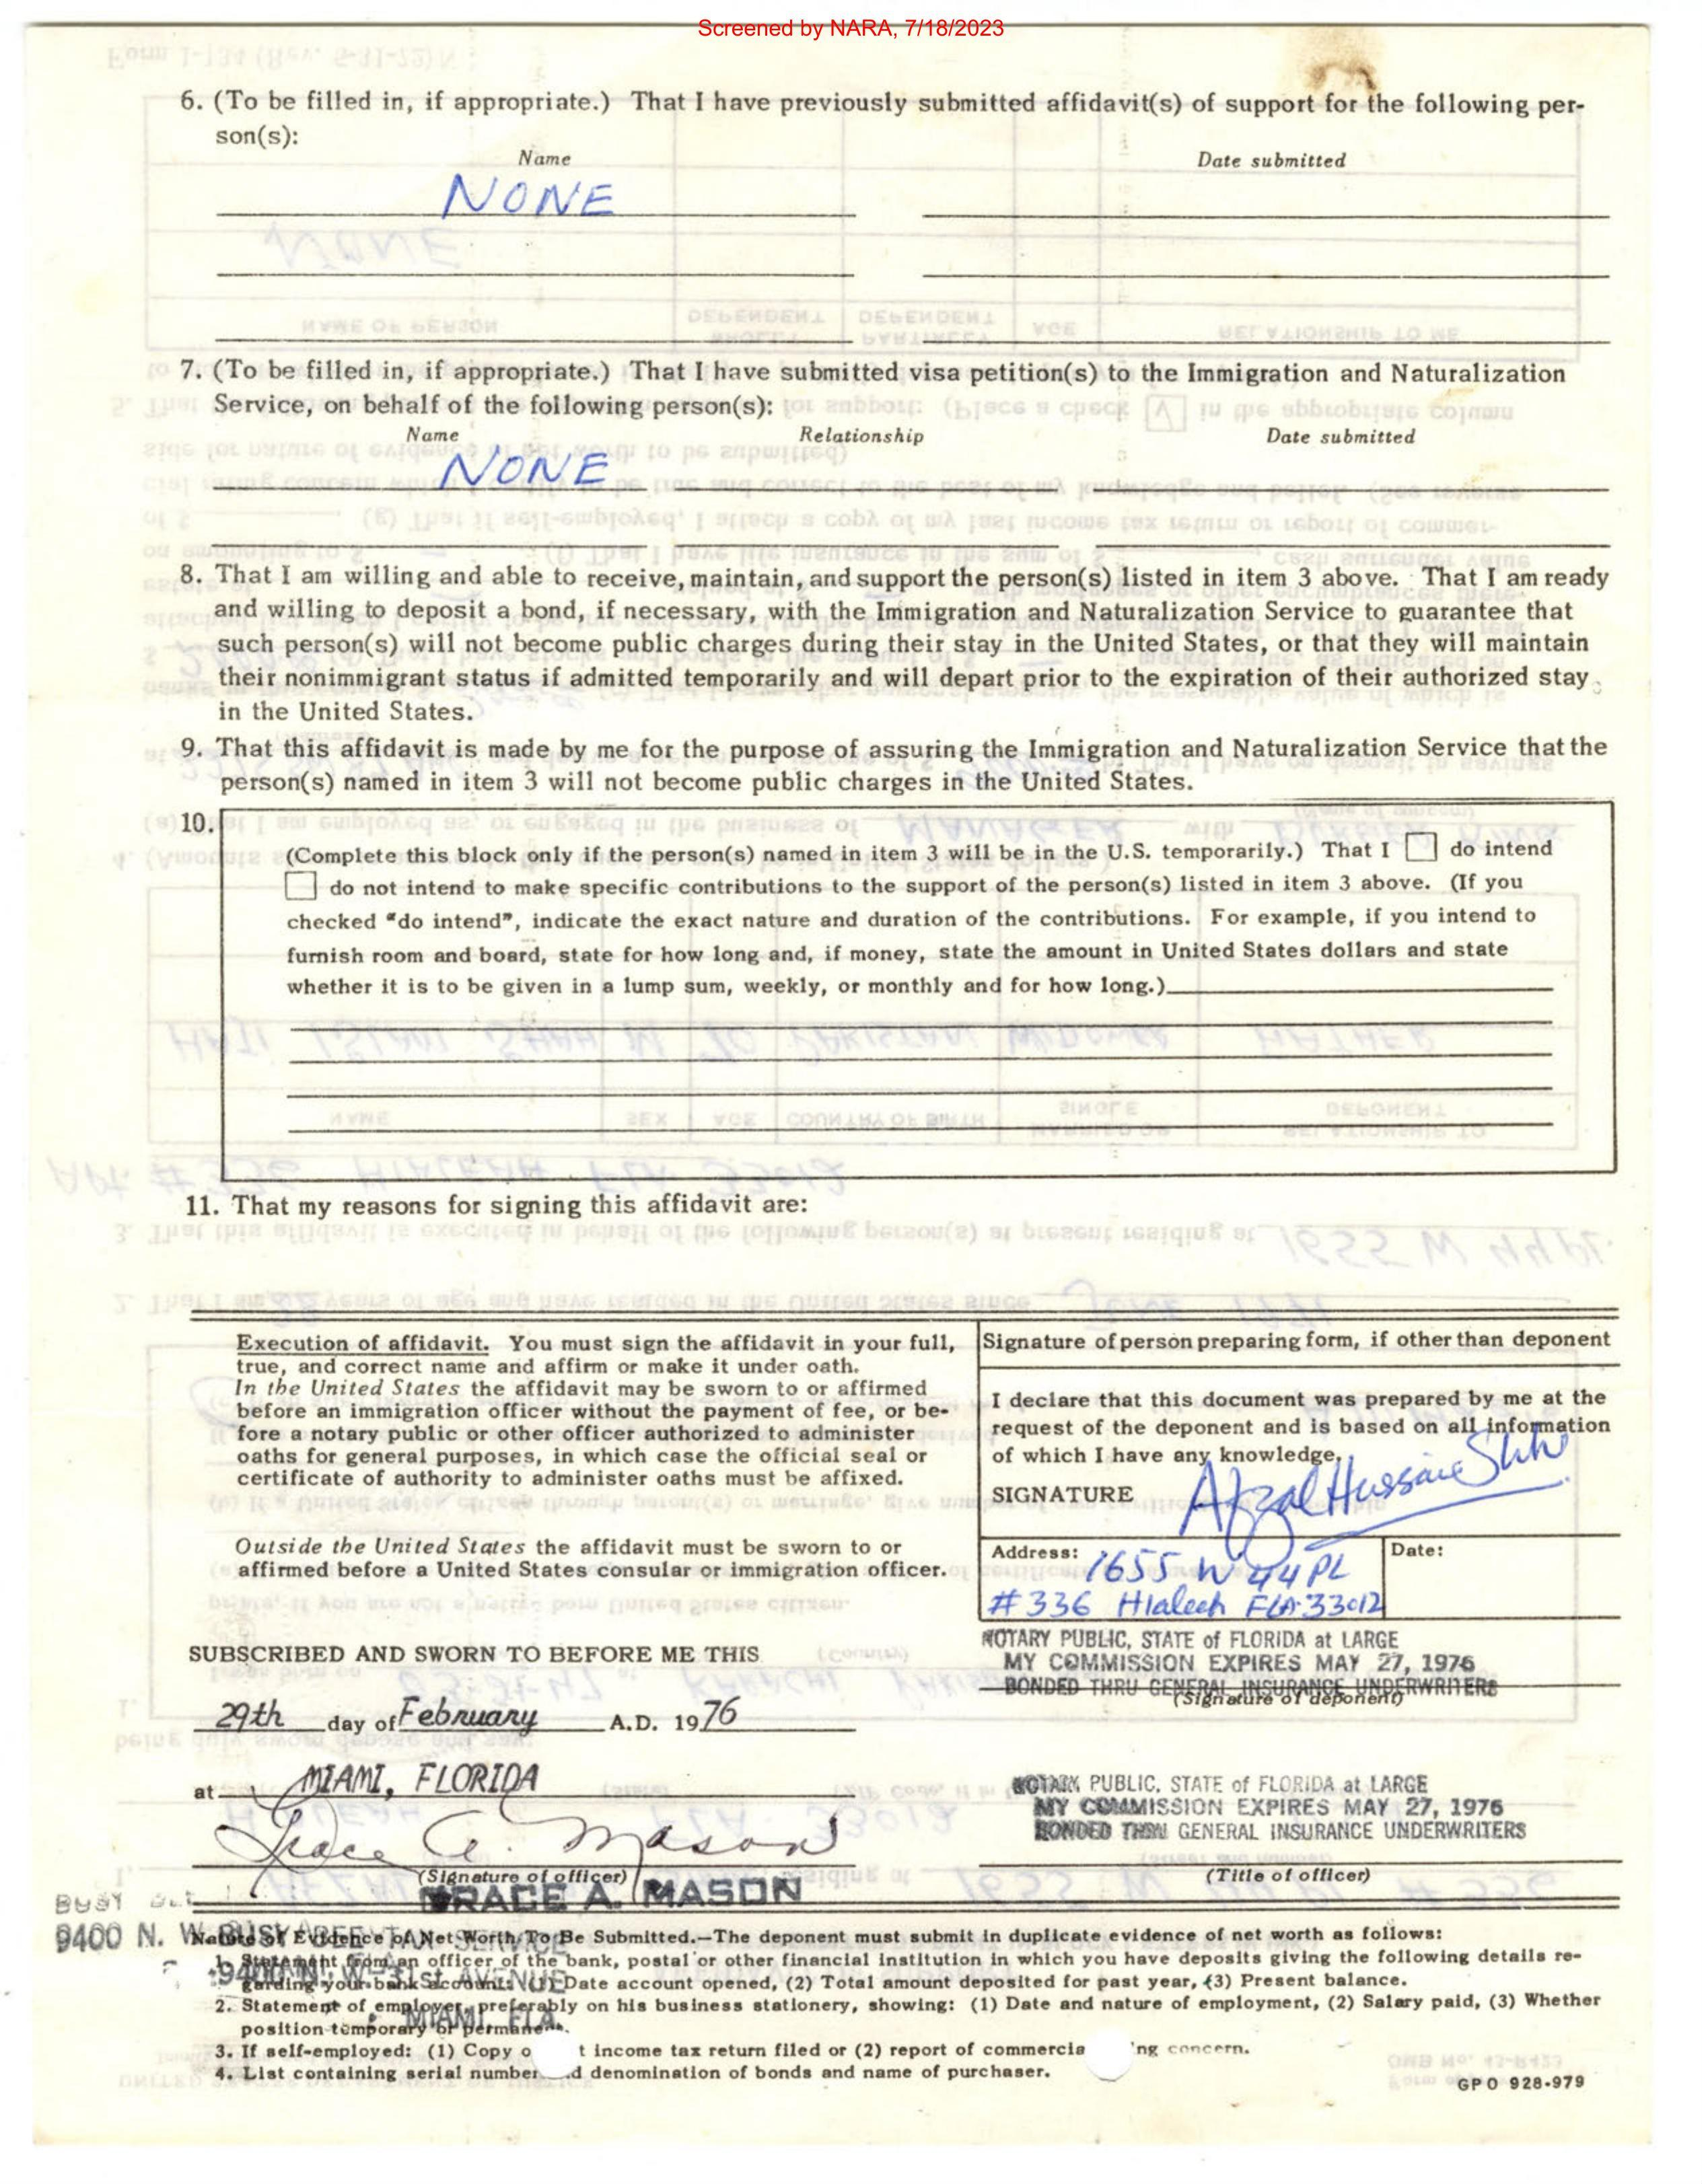 Screened by NARA, 7/18/2023
6. (To be filled in, if appropriate.) That I have previously submitted affidavit(s) of support for the following per-
son(s):
Name Date submitted
NONE
7. (To be filled in, if appropriate.) That I have submitted visa petition(s) to the Immigration and Naturalization
Service, on behalf of the following person(s):
Name Relationship Date submitted
NONE
8. That I am willing and able to receive, maintain, and support the person(s) listed in item 3 above. That I am ready
and willing to deposit a bond, if necessary, with the Immigration and Naturalization Service to guarantee that
such person(s) will not become public charges during their stay in the United States, or that they will maintain
their nonimmigrant status if admitted temporarily and will depart prior to the expiration of their authorized stay
in the United States.
9. That this affidavit is made by me for the purpose of assuring the Immigration and Naturalization Service that the
person(s) named in item 3 will not become public charges in the United States.
10.
(Complete this block only if the person(s) named in item 3 will be in the U.S. temporarily.) That I do intend
do not intend to make specific contributions to the support of the person(s) listed in item 3 above. (If you
checked "do intend", indicate the exact nature and duration of the contributions. For example, if you intend to
furnish room and board, state for how long and, if money, state the amount in United States dollars and state
whether it is to be given in a lump sum, weekly, or monthly and for how long.)
11. That my reasons for signing this affidavit are:
Execution of affidavit. You must sign the affidavit in your full,
true, and correct name and affirm or make it under oath.
In the United States the affidavit may be sworn to or affirmed
before an immigration officer without the payment of fee, or be-
fore a notary public or other officer authorized to administer
oaths for general purposes, in which case the official seal or
certificate of authority to administer oaths must be affixed.
Outside the United States the affidavit must be sworn to or
affirmed before a United States consular or immigration officer.
Signature of person preparing form, if other than deponent
I declare that this document was prepared by me at the
request of the deponent and is based on all information
of which I have any knowledge.
SIGNATURE Afzal Hussain Shah
Address: 1655 W 44 PL Date:
#336 Hialeah FLA 33012
SUBSCRIBED AND SWORN TO BEFORE ME THIS
NOTARY PUBLIC, STATE of FLORIDA at LARGE
MY COMMISSION EXPIRES MAY 27, 1976
BONDED THRU GENERAL INSURANCE UNDERWRITERS
(Signature of deponent)
29th day of February A.D. 1976
at MIAMI, FLORIDA
NOTARY PUBLIC, STATE of FLORIDA at LARGE
MY COMMISSION EXPIRES MAY 27, 1976
BONDED THRU GENERAL INSURANCE UNDERWRITERS
Grace A. Mason
(Signature of officer) (Title of officer)
GRACE A. MASON
BUSY
9400 N. W.
9400 N. W. 31st AVENUE
MIAMI, FLA.
Nature of Evidence of Net Worth To Be Submitted.—The deponent must submit in duplicate evidence of net worth as follows:
1. Statement from an officer of the bank, postal or other financial institution in which you have deposits giving the following details re-
garding your bank account: (1) Date account opened, (2) Total amount deposited for past year, (3) Present balance.
2. Statement of employer, preferably on his business stationery, showing: (1) Date and nature of employment, (2) Salary paid, (3) Whether
position temporary or permanent.
3. If self-employed: (1) Copy o t income tax return filed or (2) report of commercia ng concern.
4. List containing serial number d denomination of bonds and name of purchaser.
GPO 928-979